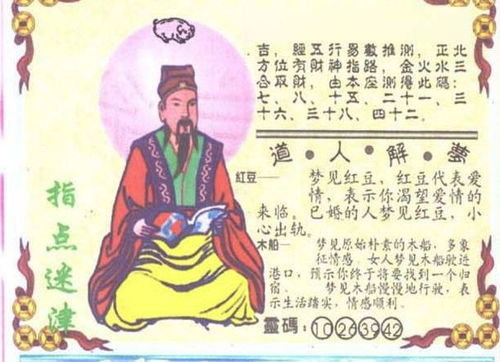 吉，經五行易數推測，正北
方位有財神指路，金火水三
合取財，由本座測得此碼：
七、八、十五、二十一、三
十六、三十八、四十二。
道·人·解·夢
紅豆——夢见红豆，红豆代表爱
情，表示你渴望爱情的
来临。已婚的人梦见红豆，小
心出轨。
木船—夢见原始朴素的木船，多象
征情感。女人梦见木船驶近
港口，预示你终于将要找到一个归
宿。梦见木船慢慢地行驶，表
示生活踏实，情感顺利。
靈碼：10 26 39 42
指点迷津